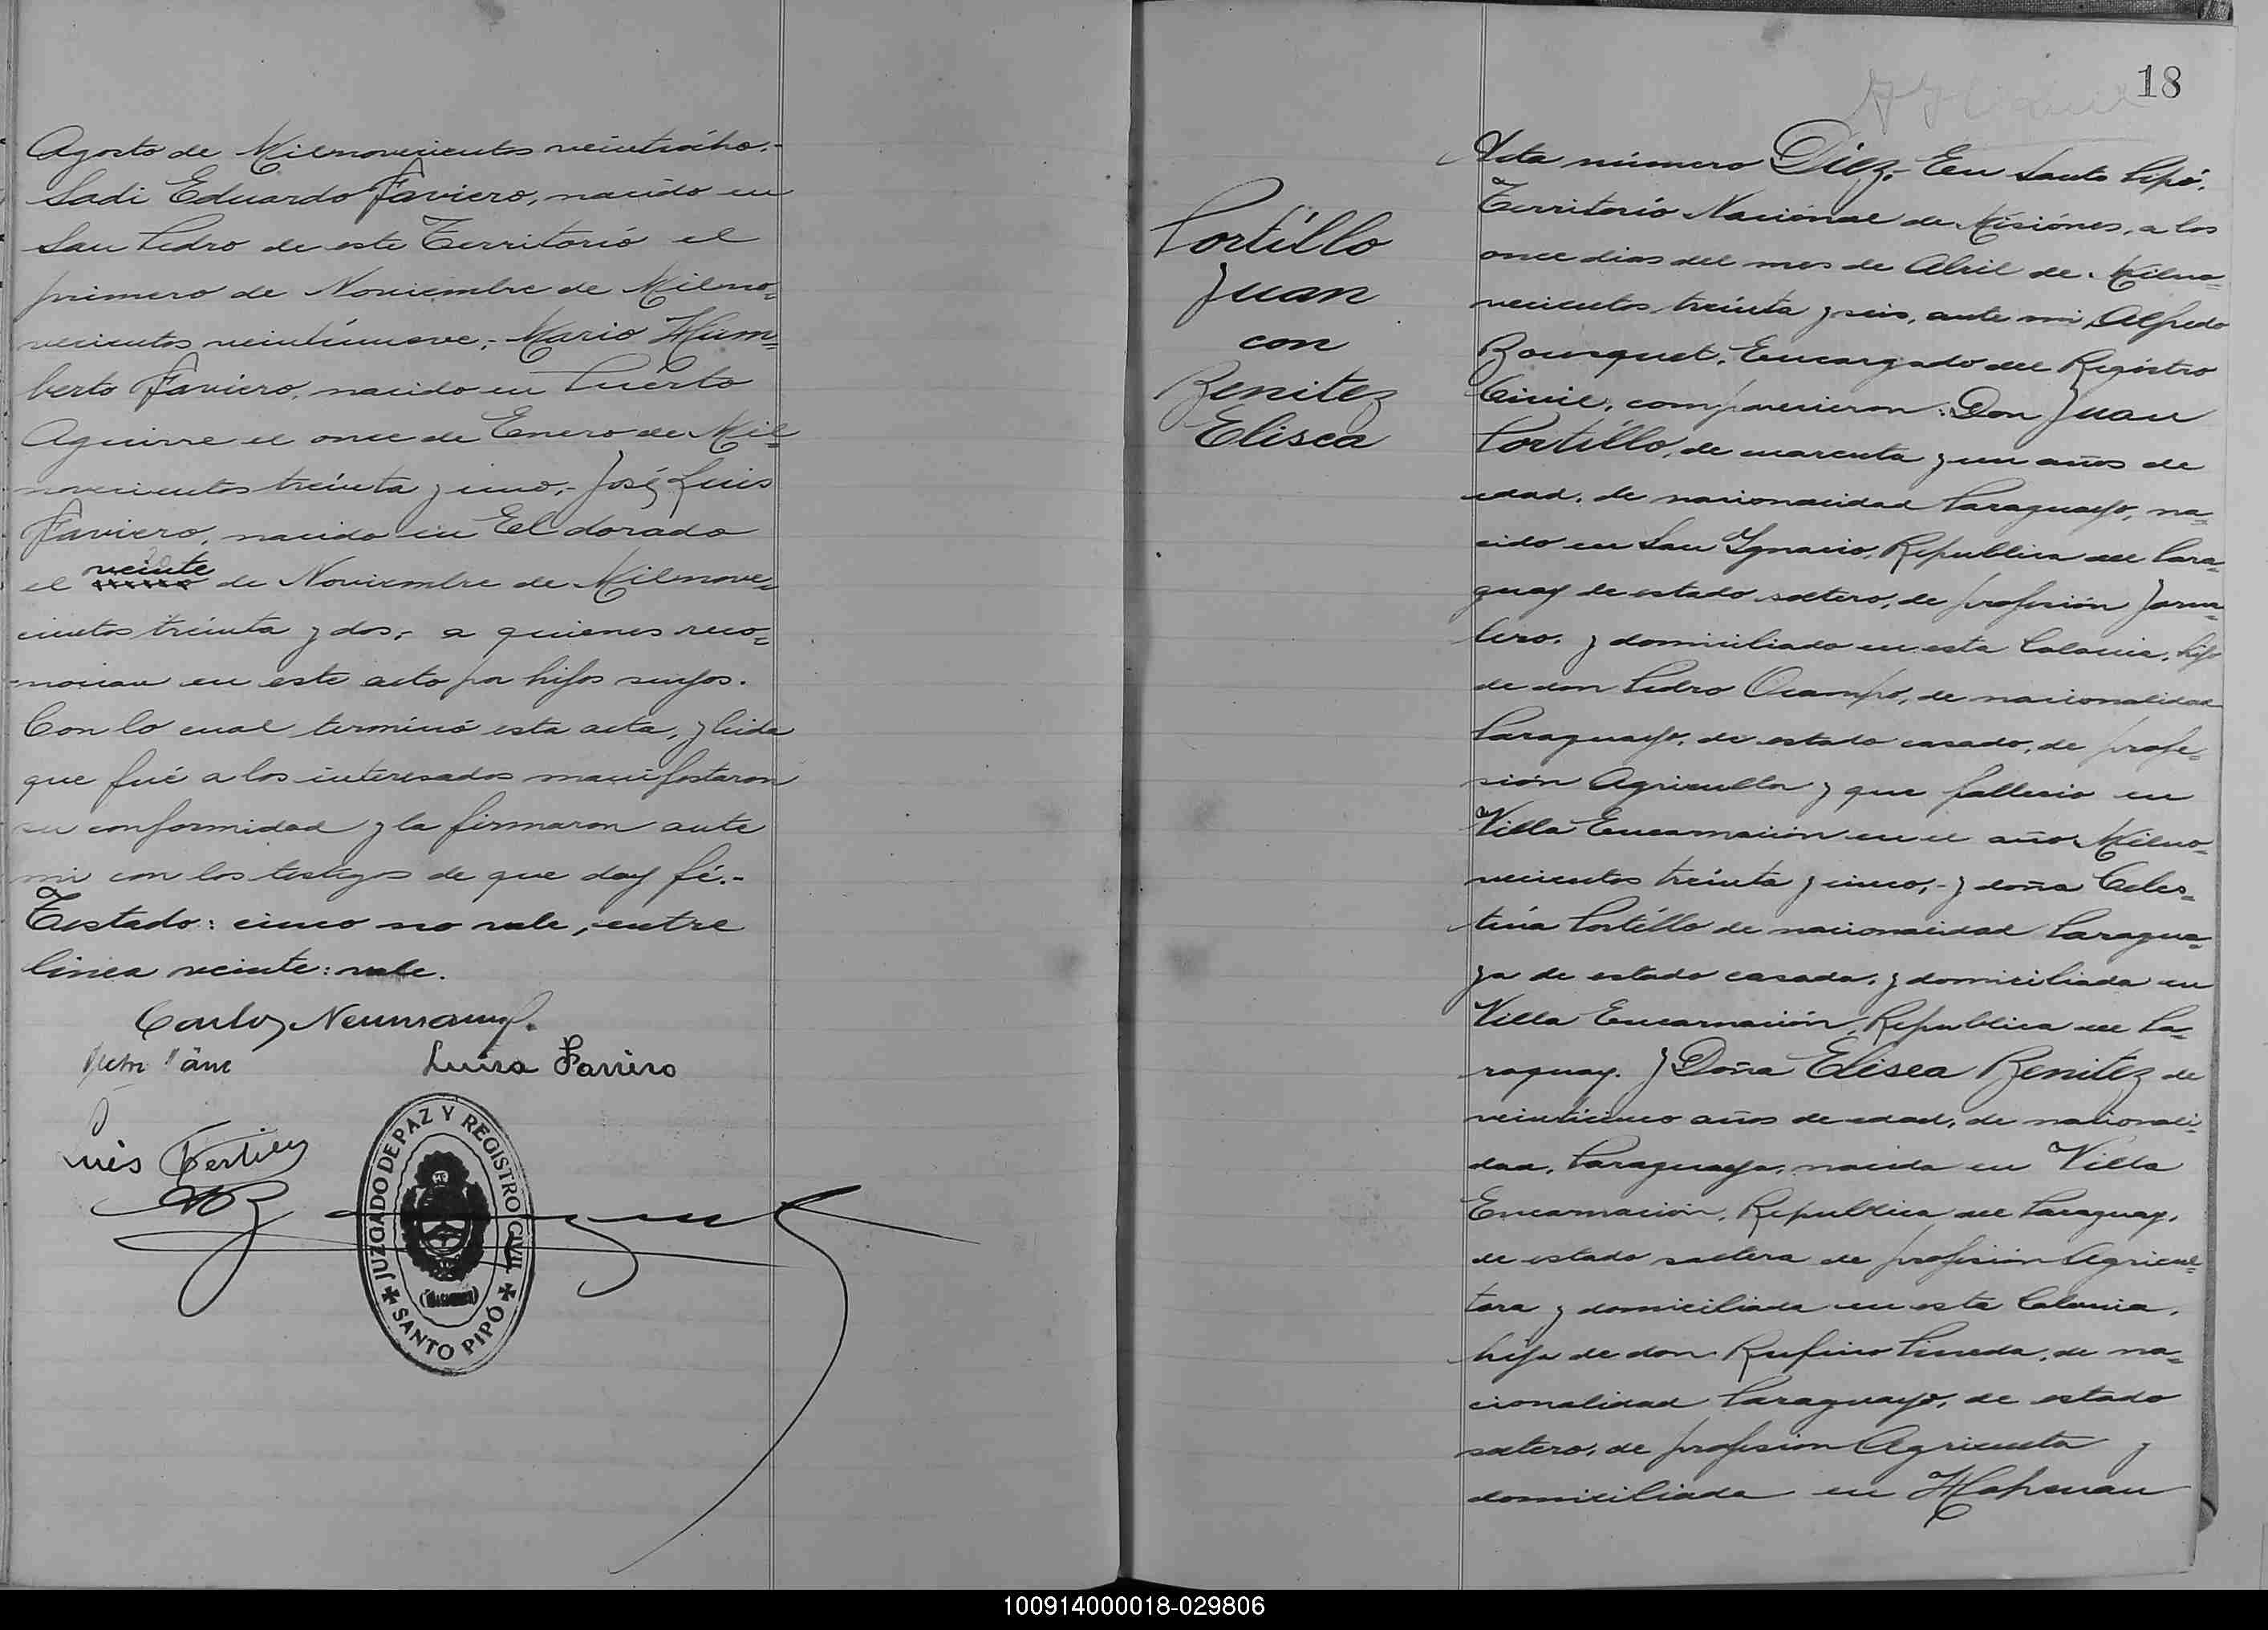 Agosto de Milnovecientos veintiocho.-
Sadi Eduardo Faviero, nacido en
San Pedro de este Territorio el
primero de Noviembre de Milno=
vecientos veintinueve,- Mario Hum=
berto Faviero, nacido en Puerto
Aguirre el once de Enero de Mil=
novecientos treinta y uno,- José Luis
Faviero, nacido en El dorado
el veinte de Noviembre de Milnove=
cientos treinta y dos,- a quienes reco=
nocian en este acto por hijos suyos.
Con lo cual terminó esta acta, y leida
que fué a los interesados manifestaron
su conformidad y la firmaron ante
mi con los testigos de que doy fé.-
Testado: cinco no vale, entre
linea veinte: vale.
Carlos Neumann.
Luisa Faviero
Luis
JUZGADO DE PAZ Y REGISTRO CIVIL
SANTO PIPÓ
18
Portillo
Juan
con
Benitez
Elisea
Acta número Diez,- En Santo Pipó,
Territorio Nacional de Misiónes, a los
once dias del mes de Abril de Milno=
vecientos treinta y seis, ante mi Alfredo
Bousquet, Encargado del Registro
Civil, comparecieron: Don Juan
Portillo, de cuarenta y un años de
edad, de nacionalidad Paraguayo, na=
cido en San Ygnacio, Republica del Para=
guay de estado soltero, de profesión Jorna=
lero, y domiciliado en esta Colonia, hijo
de don Pedro Ocampo, de nacionalidad
Paraguayo, de estado casado, de profe=
sión Agricultor y que fallecio en
Villa Encarnación en el año Milno=
vecientos treinta y cinco,- y doña Celes=
tina Portillo de nacionalidad Paragua=
ya de estado casada, y domiciliada en
Villa Encarnación, Republica del Pa=
raguay. y Doña Elisea Benitez de
veinticinco años de edad, de nacionali=
dad, Paraguaya, nacida en Villa
Encarnación, Republica del Paraguay,
de estado soltera de profesión Agricul=
tora y domiciliada en esta Colonia,
hija de don Rufino Pineda, de na=
cionalidad Paraguayo, de estado
soltero, de profesion Agriculta y
domiciliada en
100914000018-029806